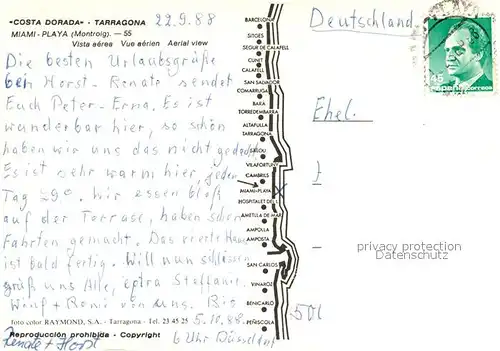 "COSTA DORADA" - TARRAGONA
MIAMI-PLAYA (Montroig). — 55
Vista aérea Vue aérien Aerial view
22.9.88
Die besten Urlaubsgrüße
Horst - Renate sendet
Euch Peter - Erna. Es ist
wunderbar hier, so schön
haben wir uns das nicht gedacht
Es ist sehr warm hier, jeden
Tag 29°. Wir essen bloß
auf der Terrase, haben schon
Fahrten gemacht. Das vierte Haus
ist bald fertig. Will nun schliessen
grüß uns Alle, extra Steffanie,
Winf + Romi von uns. Bis
5.10.88
6 Uhr Düsseldorf
Renate + Horst
foto color RAYMOND, S.A. - Tarragona - Tel. 23 45 25
Reproducción prohibida - Copyright
BARCELONA
SITGES
SEGUR DE CALAFELL
CUNIT
CALAFELL
SAN SALVADOR
COMARRUGA
BARA
TORREDEMBARRA
ALTAFULLA
TARRAGONA
SALOU
VILAFORTUNY
CAMBRILS
MIAMI-PLAYA
HOSPITALET DEL I.
AMETLLA DE MAR
AMPOLLA
AMPOSTA
SAN CARLOS
VINAROZ
BENICARLO
PEÑISCOLA
Deutschland
45
España
correos
Ehel.
501
privacy protection
Datenschutz